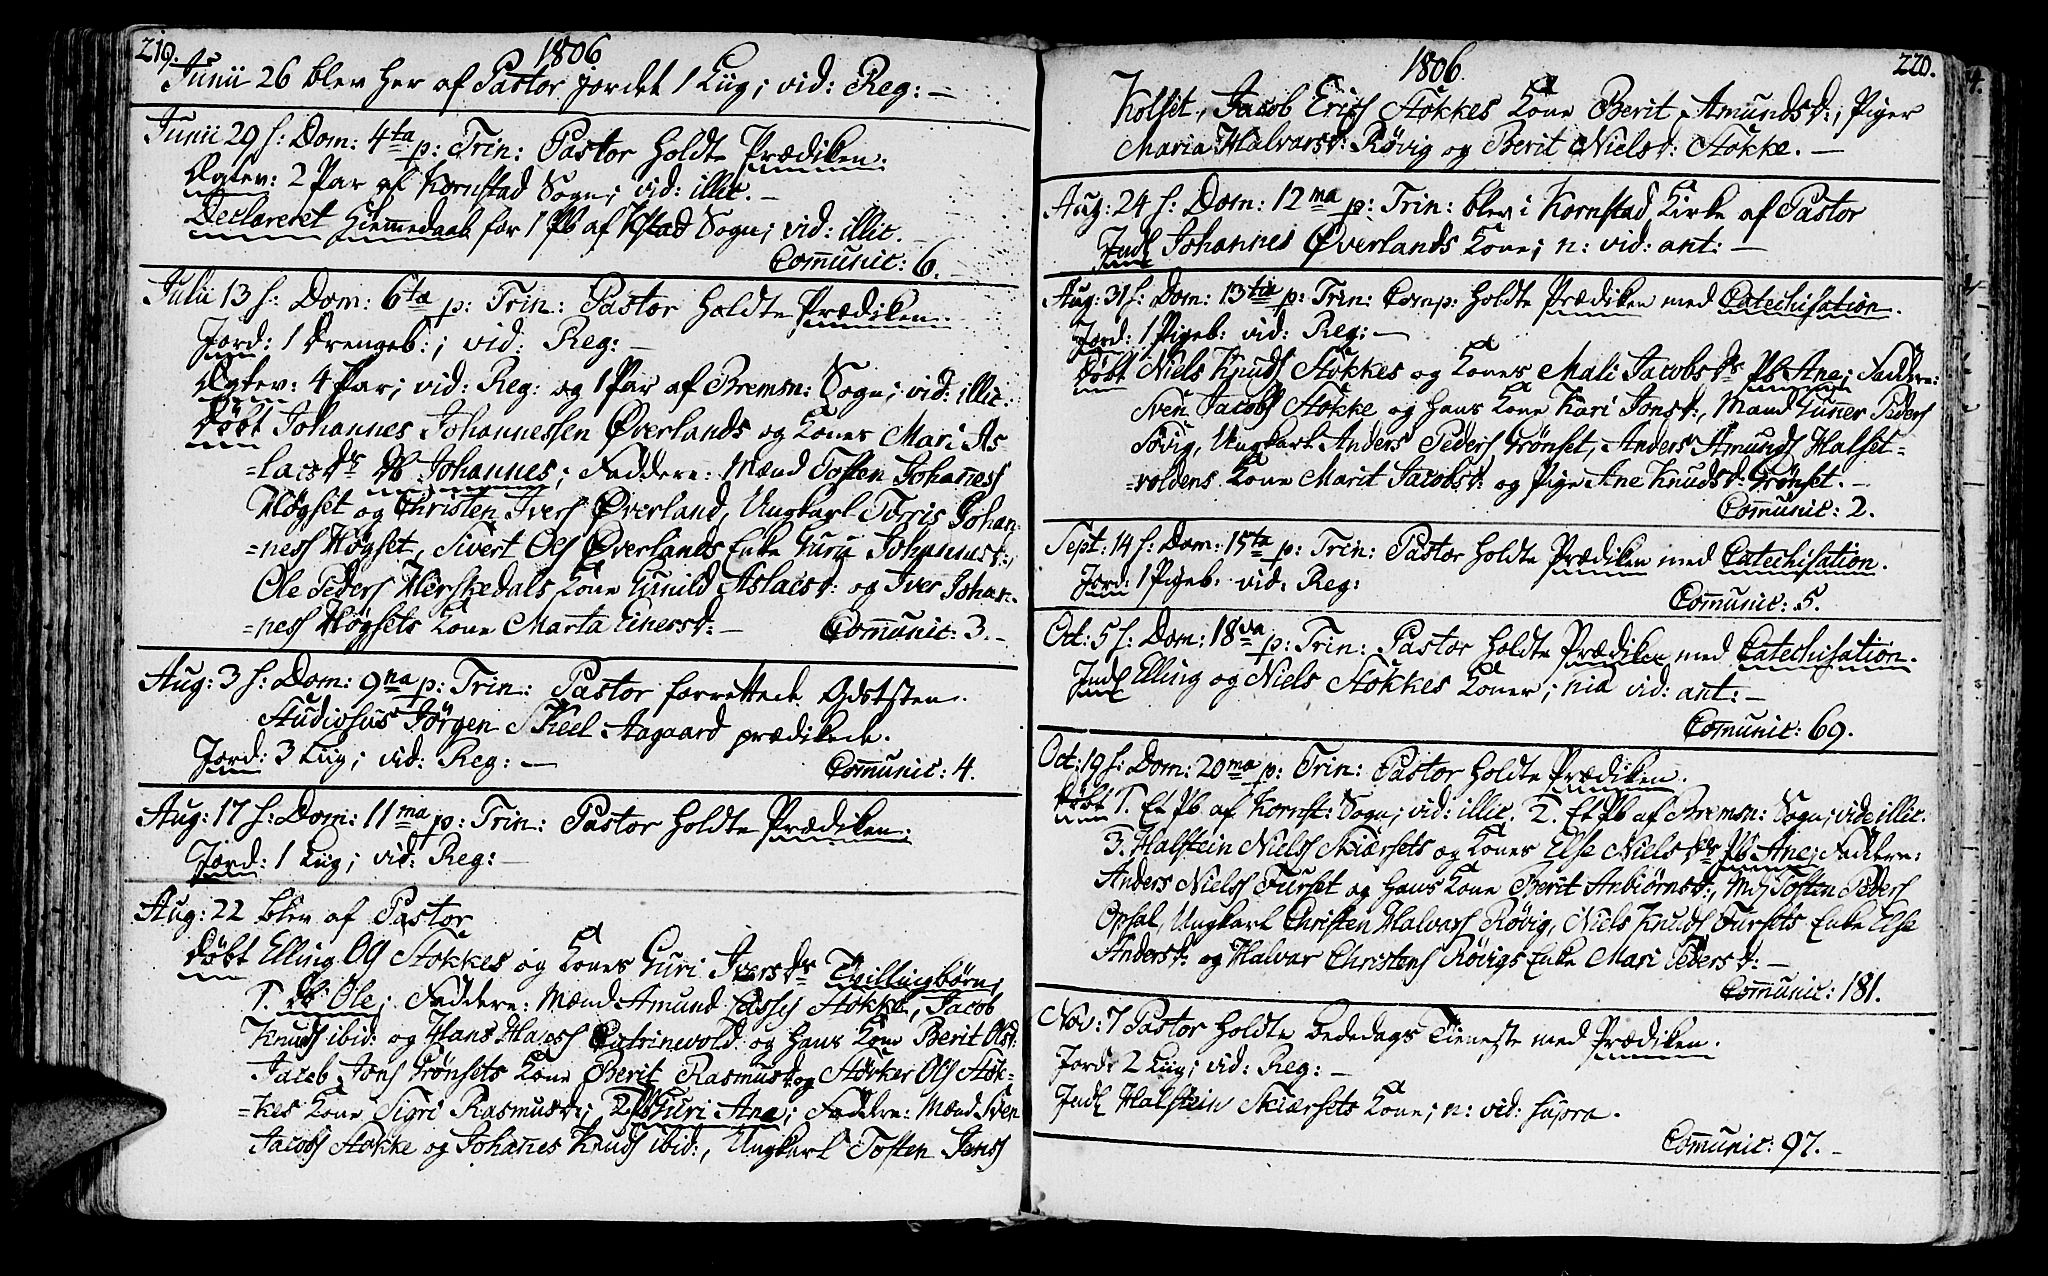 219.
1806
Junii 26 blev her af Pastor jordet 1 Liig; vid: Reg: —
Junii 29 s: Dom: 4ta p: Trin: Pastor holdte Prædiken.
Ægtev: 2 Par af Kornstad Sogn; vid: illic. —
Declareret Hiemmedaab for 1 Pb af Kstad Sogn; vid: illic.
Communic: 6. —
Julii 13 s: Dom: 6ta p: Trin: Pastor holdte Prædiken.
Jord: 1 Drengeb:; vid: Reg: —
Ægtev: 4 Par; vid: Reg: og 1 Par af Bremsn: Sogn; vid: illic.
Døbt Johannes Johannessen Øverlands og Kones Mari As-
=lacsdr Db Johannes; Faddere: Mænd Tosten Johaness
Høgset og Christen Ivers Øverland, Ungkarl Torris Johan-
=ness Høgset, Sivert Ols Øverlands Enke Guru Johannesd:,
Ole Peders Herskedals Kone Gunild Aslacsd: og Iver Johan-
=ness Høgsets Kone Marta Einersd: — Communic: 3. —
Aug: 3 s: Dom: 9na p: Trin: Pastor forrettede Gdststen.
Studiosus Jörgen Skeel Aagaard prædikede.
Jord: 3 Liig; vid: Reg: — Communic: 4.
Aug: 17 s: Dom: 11ma p: Trin: Pastor holdte Prædiken.
Jord: 1 Liig; vid: Reg: —
Aug: 22 blev af Pastor
Døbt Elling Ols Stokkes og Kones Guri Iversdr Tvillingbörn;
1. Db Ole; Faddere: Mænd Amund Lasses Stokke, Jacob
Knuds ibid: og Hans Hanss Catrinevold og hans Kone Berit Olsd:
Jacob Jons Grönsets Kone Berit Rasmusd: og Störker Ols Stok-
=kes Kone Sigri Rasmusd:; 2. Pb Guri Ana; Faddere: Mænd Sven
Jacobs Stokke og Johanes Knuds ibid:, Ungkarl Tosten Jonss
220.
1806.
Kolset, Jacob Erics Stokkes Kone Berit Amundsd:, Piger
Maria Halvarsd: Rövig og Berit Nielsd: Stokke. —
Aug: 24 s: Dom: 12ma p: Trin: blev i Kornstad Kirke af Pastor
Indl Johannes Øverlands Kone; n: vid: ant: —
Aug: 31 s: Dom: 13tia p: Trin: Comp: holdte Prædiken med Catechisation.
Jord: 1 Pigeb: vid: Reg: —
Döbt Niels Knuds Stokkes og Kones Mali Jacobsdr Pb Ane; Faddere:
Sven Jacobs Stokke og hans Kone Kari Jonsd:, Mand Guner Peders
Sövig, Ungkarl Anders Peders Grönset, Anders Amunds Halset-
=voldens Kone Marit Jacobsd: og Pige Ane Knudsd: Grönset. —
Comunic: 2.
Sept: 14 s: Dom: 15ta p: Trin: Pastor holdte Prædiken med Catechisation.
Jord: 1 Pigeb: vid: Reg:
Comunic: 5.
Oct: 5 s: Dom: 18va p: Trin: Pastor holdte Prædiken med Catechisation.
Indl Elling og Niels Stokkes Koner; nia vid: ant: —
Comunic: 69.
Oct: 19 s: Dom: 20ma p: Trin: Pastor holdte Prædiken.
Döbt 1. Et Pb af Kornst: Sogn; vid: illic. 2. Et Pb af Bremsn: Sogn; vide illic.
3. Halstein Nielss Skiærsets og Kones Else Nielsdr Pb Ane; Faddere:
Anders Nielss Furset og hans Kone Berit Anbiörnsd:, Md Tosten Peders
Opsal, Ungkarl Christen Halvars Rövig, Niels Knuds Fursets Enke Else
Andersd: og Halvar Christens Rövigs Enke Mari Pedersd: —
Comunic: 181.
Nov: 7 Pastor holdte Bededags Tieneste med Prædiken.
Jord: 2 Liig; vid: Reg: —
Indl Halstein Skiærsets Kone; n: vid: supra.
Comunic: 97. —